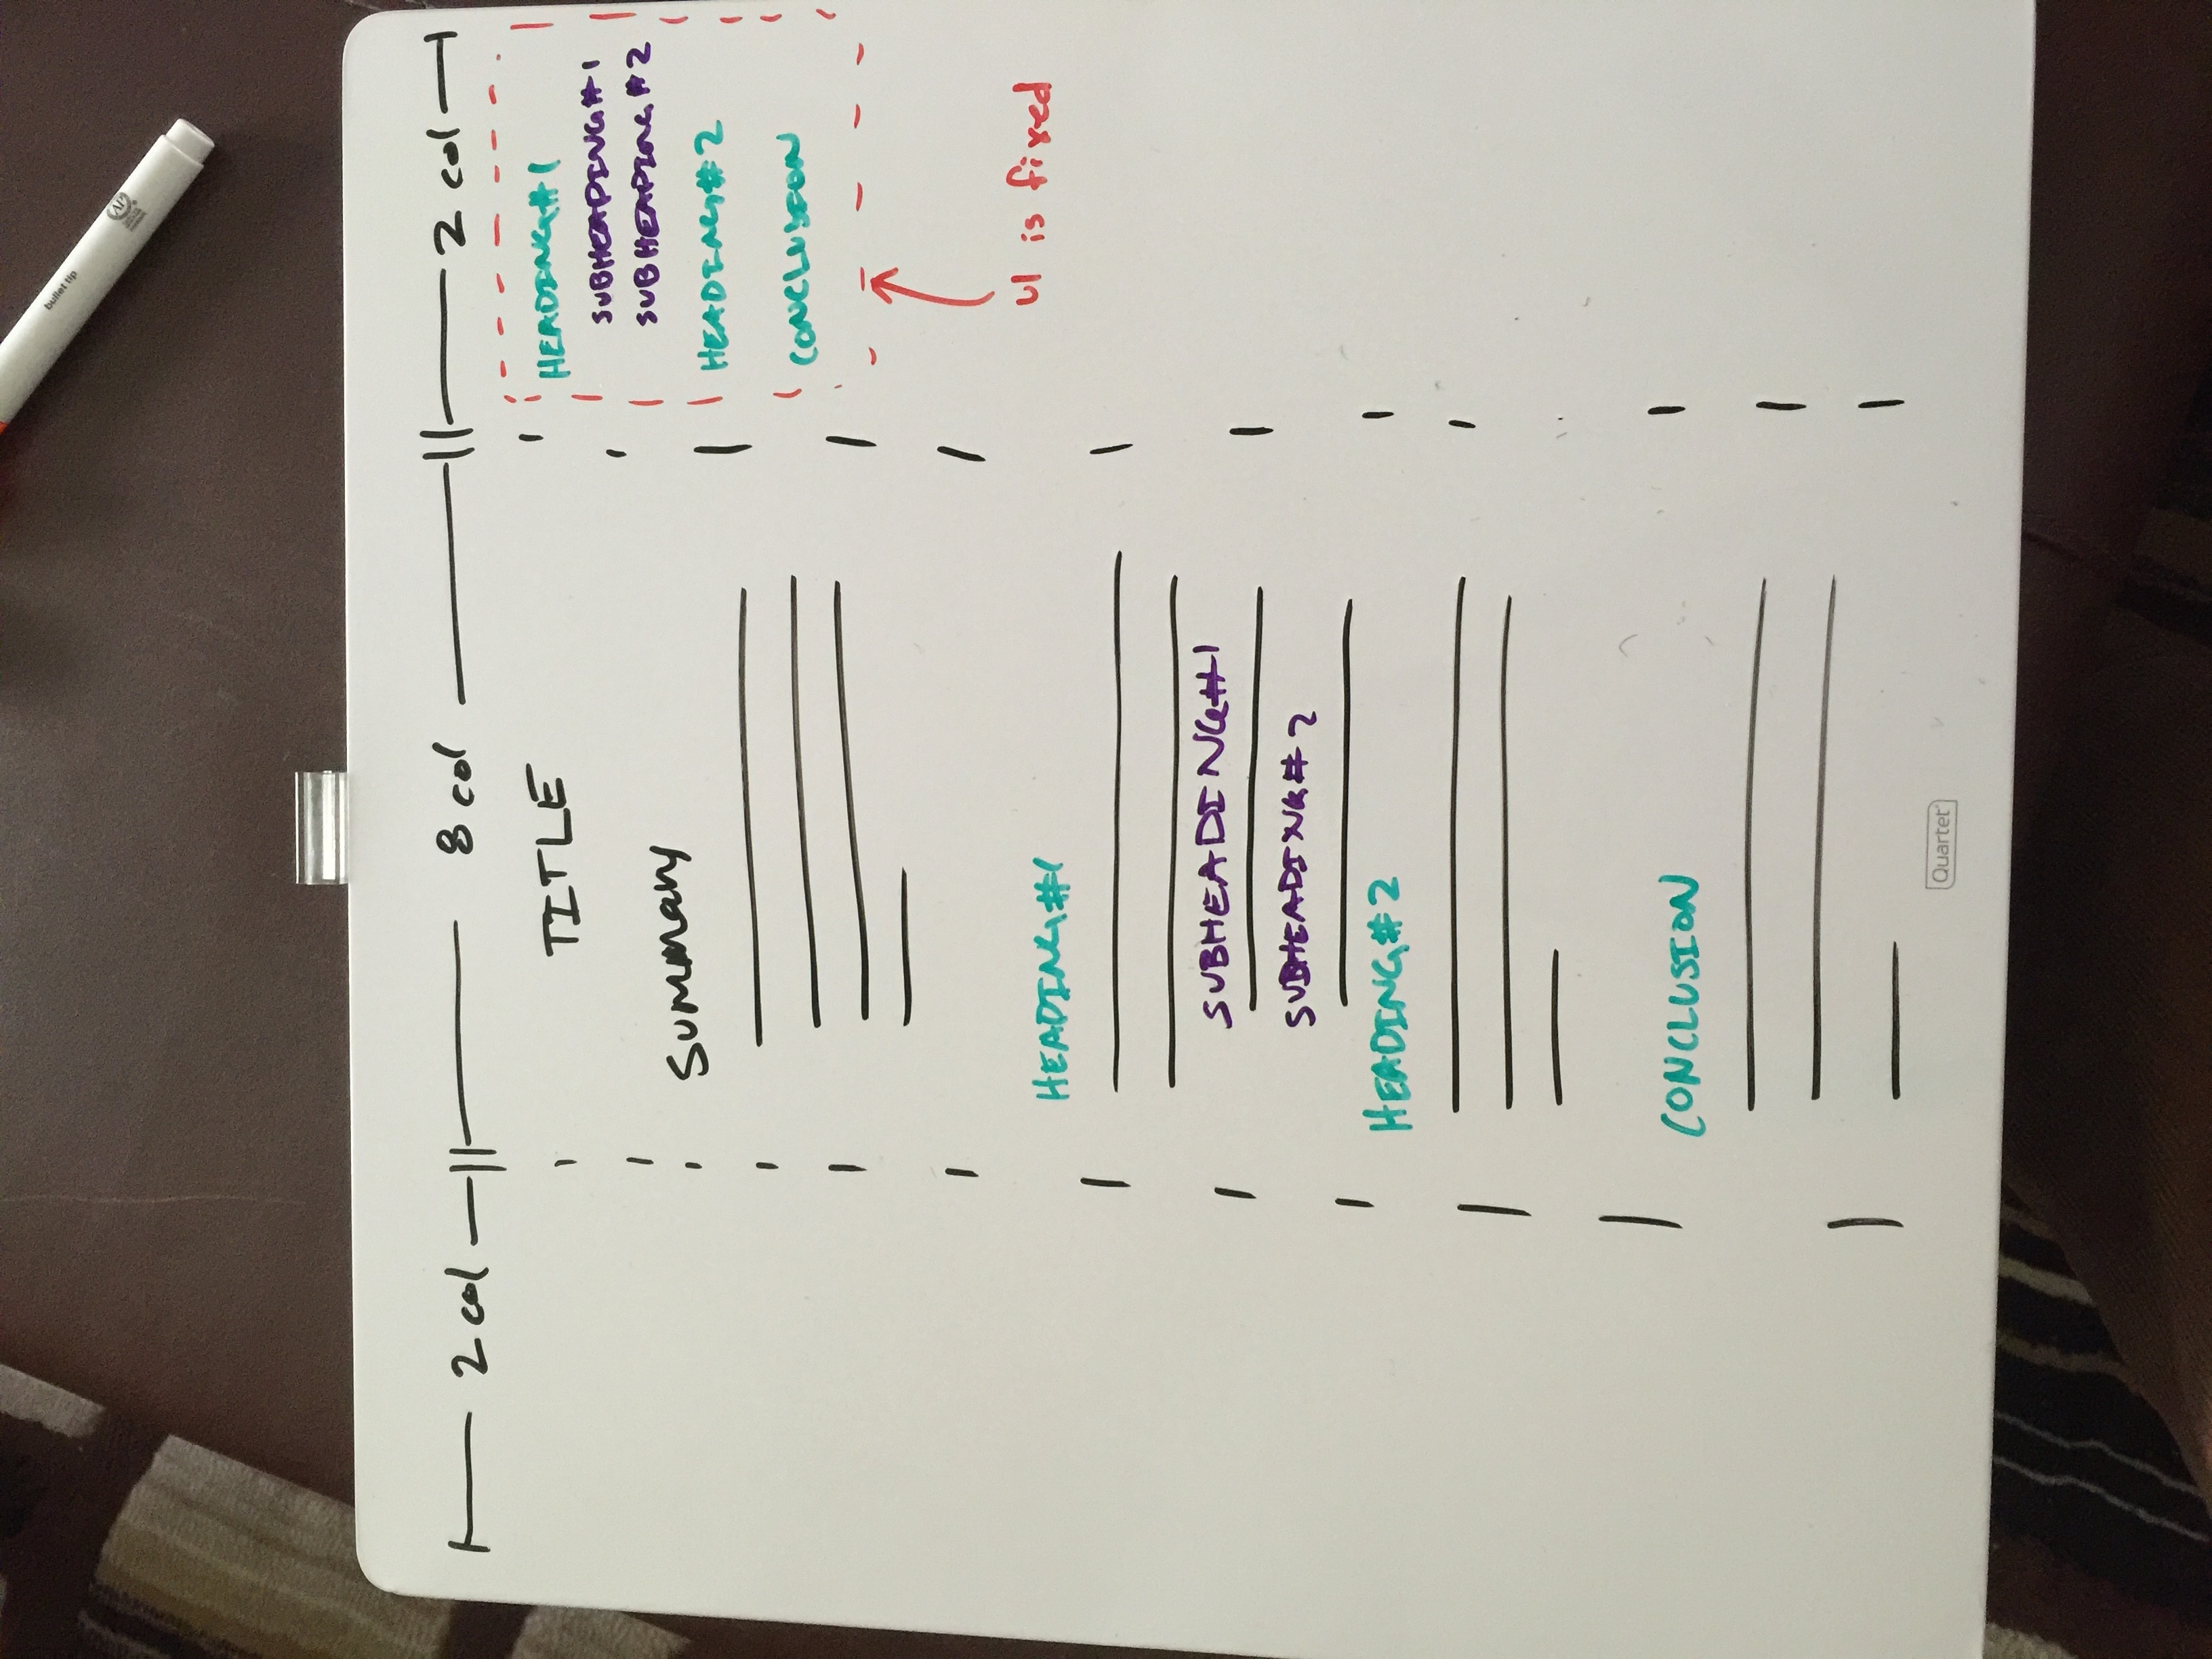 2 col 8 col 2 col
TITLE
Summary
HEADING#1
SUBHEADING#1
SUBHEADING#2
HEADING#2
CONCLUSION
HEADING#1
SUBHEADING#1
SUBHEADING#2
HEADING#2
CONCLUSION
ul is fixed
Quartet
bullet tip
AP